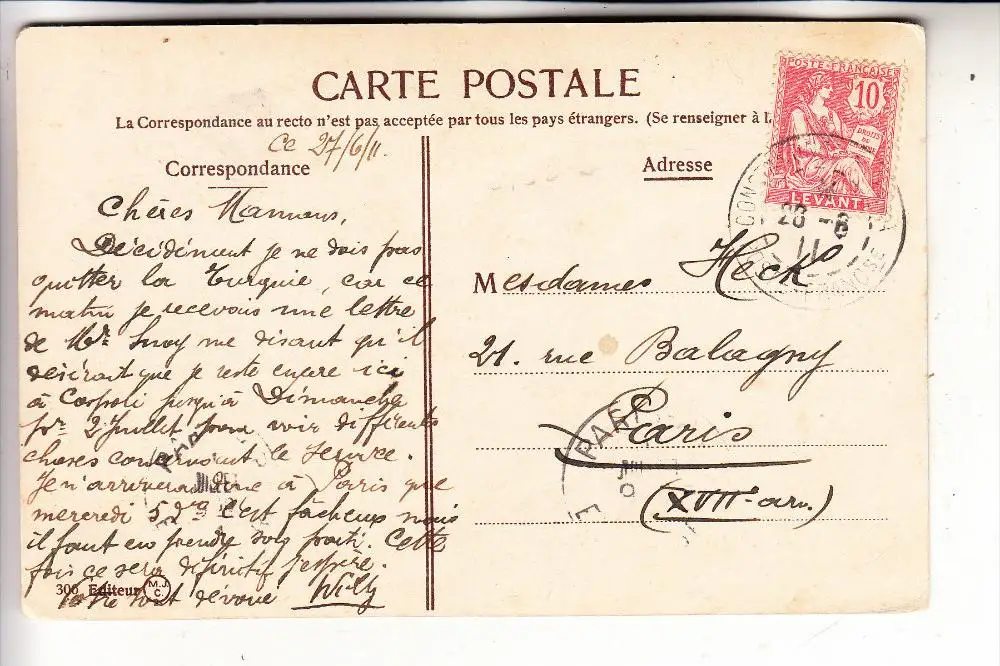 CARTE POSTALE
La Correspondance au recto n'est pas acceptée par tous les pays étrangers. (Se renseigner à l
Ce 27/6/11.
Correspondance
Chères Mamans,
Décidément je ne dois pas
quitter la Turquie, car ce
matin je recevais une lettre
de Mr. me disant qu'il
désirait que je reste encore ici
à Cospoli jusqu'à Dimanche
2 Juillet pour voir différentes
choses concernant le Service.
Je n'arriverai à Paris que
mercredi 5 C'est fâcheux mais
il faut en prendre son parti. Cette
fois ce sera définitif j'espère.
Votre tout dévoué Willy
306 Editeur M.J.C.
Adresse
POSTE FRANÇAISE
10
DROITS DE L'HOMME
LEVANT
28 -6
11
Mesdames Heck
21. rue Balagny
Paris
(XVIIe arr.)
PARA
PARIS